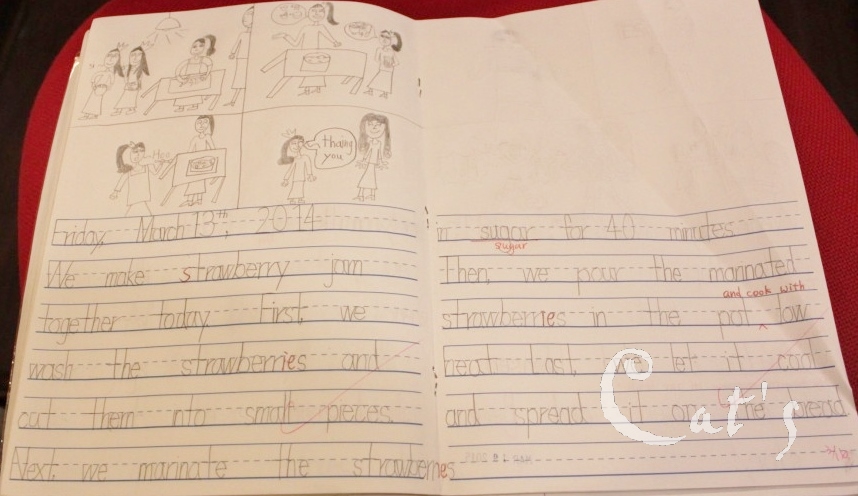 thang
you
Friday, March 13th, 2014
We make strawberry jam
together today. First, we
wash the strawberries and
cut them into small pieces.
Next, we marinate the strawberries
in sugar for 40 minutes.
sugar
Then, we pour the marinated
and cook with
strawberries in the pot low
heat. Last, we let it cool
and spread it on the bread.
Cat's